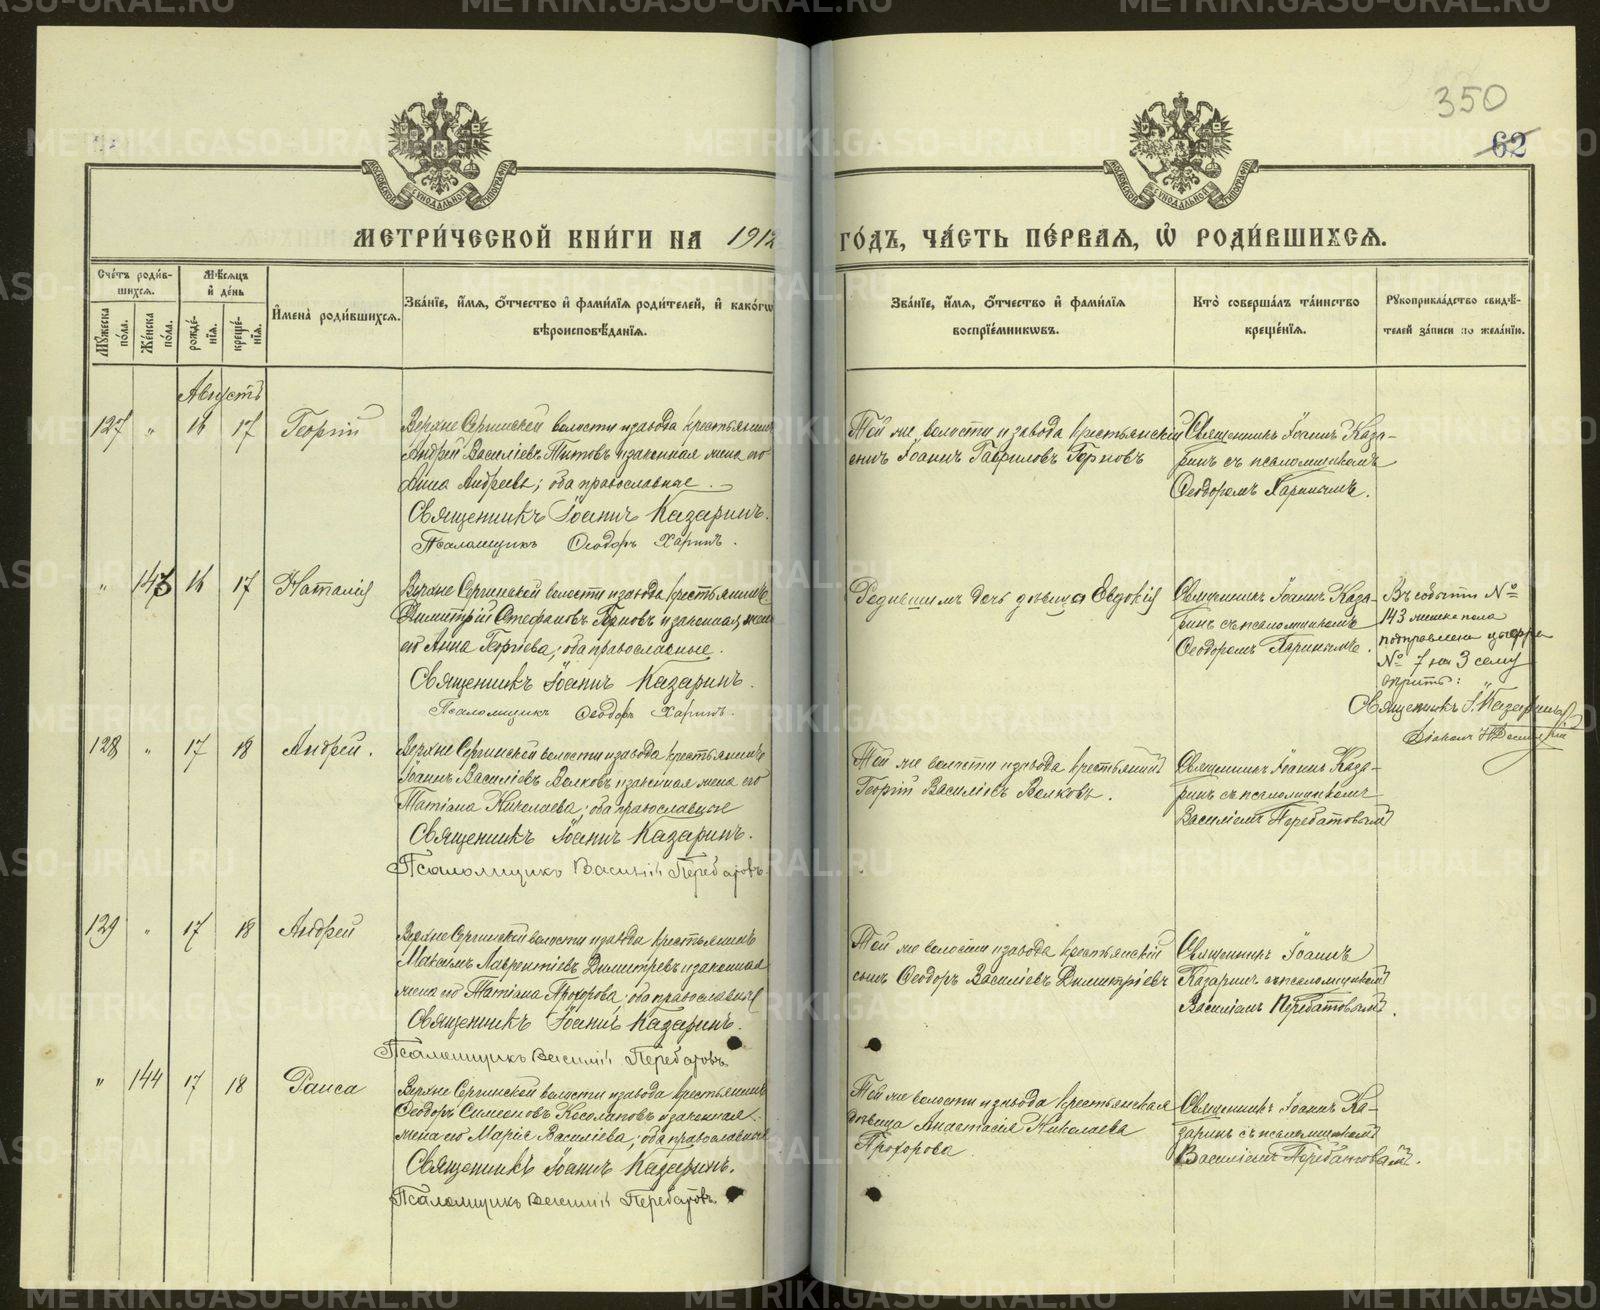 350
62
МОСКОВСКОЙ СѴНОДАЛЬНОЙ ТИПОГРАФІИ
МОСКОВСКОЙ СѴНОДАЛЬНОЙ ТИПОГРАФІИ
МЕТРИ́ЧЕСКОЙ КНИ́ГИ НА 1912 ГО́ДЪ, ЧА́СТЬ ПЕ́РВАЯ, Ѽ РОДИ́ВШИХСЯ.
Сче́тъ роди́в-
шихся.
Мѣ́сяцъ
и҆ де́нь
Мꙋ́жеска по́ла.
Же́нска по́ла.
рожде́нїя.
креще́нїя.
И҆мена̀ роди́вшихся.
Зва́нїе, и҆́мя, ѻ҆́тчество и҆ фами́лїя роди́телей, и҆ како́гѡ
вѣроисповѣ́данїя.
Зва́нїе, и҆́мя, ѻ҆́тчество и҆ фами́лїя
воспрїе́мникѡвъ.
Кто̀ соверша́лъ та́инство
креще́нїя.
Рꙋкоприкла́дство свидѣ́-
телей за́писи по жела́нїю.
Августъ
127 " 16 17 Георгій
Верхне Сергинской волости и завода крестьянинъ
Андрей Василіевъ Титовъ и законная жена его
Анна Андреева; оба православные.
Священникъ Іоаннъ Казаринъ.
Псаломщикъ Ѳеодоръ Харинъ.
Той же волости и завода крестьянскій
сынъ Іоаннъ Гавриловъ Горновъ
Священникъ Іоаннъ Каза-
ринъ съ псаломщикомъ
Ѳеодоромъ Харинымъ.
" 143 16 17 Наталія
Верхне Сергинской волости и завода крестьянинъ
Димитрій Стефановъ и законная жена
его Анна Георгіева; оба православные.
Священникъ Іоаннъ Казаринъ.
Псаломщикъ Ѳеодоръ Харинъ.
дочь дѣвица Евдокія
Священникъ Іоаннъ Каза-
ринъ съ псаломщикомъ
Ѳеодоромъ Харинымъ.
Въ событіи №
143 женска пола
поправлена цифра
№ 7 на 3 сему
вѣрить:
Священникъ І. Казаринъ
Діаконъ
128 " 17 18 Андрей.
Верхне Сергинской волости и завода крестьянинъ
Іоаннъ Василіевъ Волковъ и законная жена его
Татіана Николаева; оба православные
Священникъ Іоаннъ Казаринъ.
Псаломщикъ Василій Перебатовъ.
Той же волости и завода крестьянинъ
Георгій Василіевъ Волковъ.
Священникъ Іоаннъ Каза-
ринъ съ псаломщикомъ
Василіемъ Перебатовымъ
129 " 17 18 Андрей
Верхне Сергинской волости и завода крестьянинъ
Максимъ Лаврентіевъ Димитріевъ и законная
жена его Татіана Прохорова; оба православные
Священникъ Іоаннъ Казаринъ.
Псаломщикъ Василій Перебатовъ
Той же волости и завода крестьянскій
сынъ Ѳеодоръ Василіевъ Димитріевъ
Священникъ Іоаннъ
Казаринъ съ псаломщикомъ
Василіемъ Перебатовымъ.
" 144 17 18 Раиса
Верхне Сергинской волости и завода крестьянинъ
Ѳеодоръ Симеоновъ Косолаповъ и законная
жена его Марія Василіева; оба православные
Священникъ Іоаннъ Казаринъ.
Псаломщикъ Василій Перебатовъ.
Той же волости и завода крестьянская
дѣвица Анастасія Николаева
Прохорова
Священникъ Іоаннъ Ка-
заринъ съ псаломщикомъ
Василіемъ Перебатовымъ.
METRIKI.GASO-URAL.RU